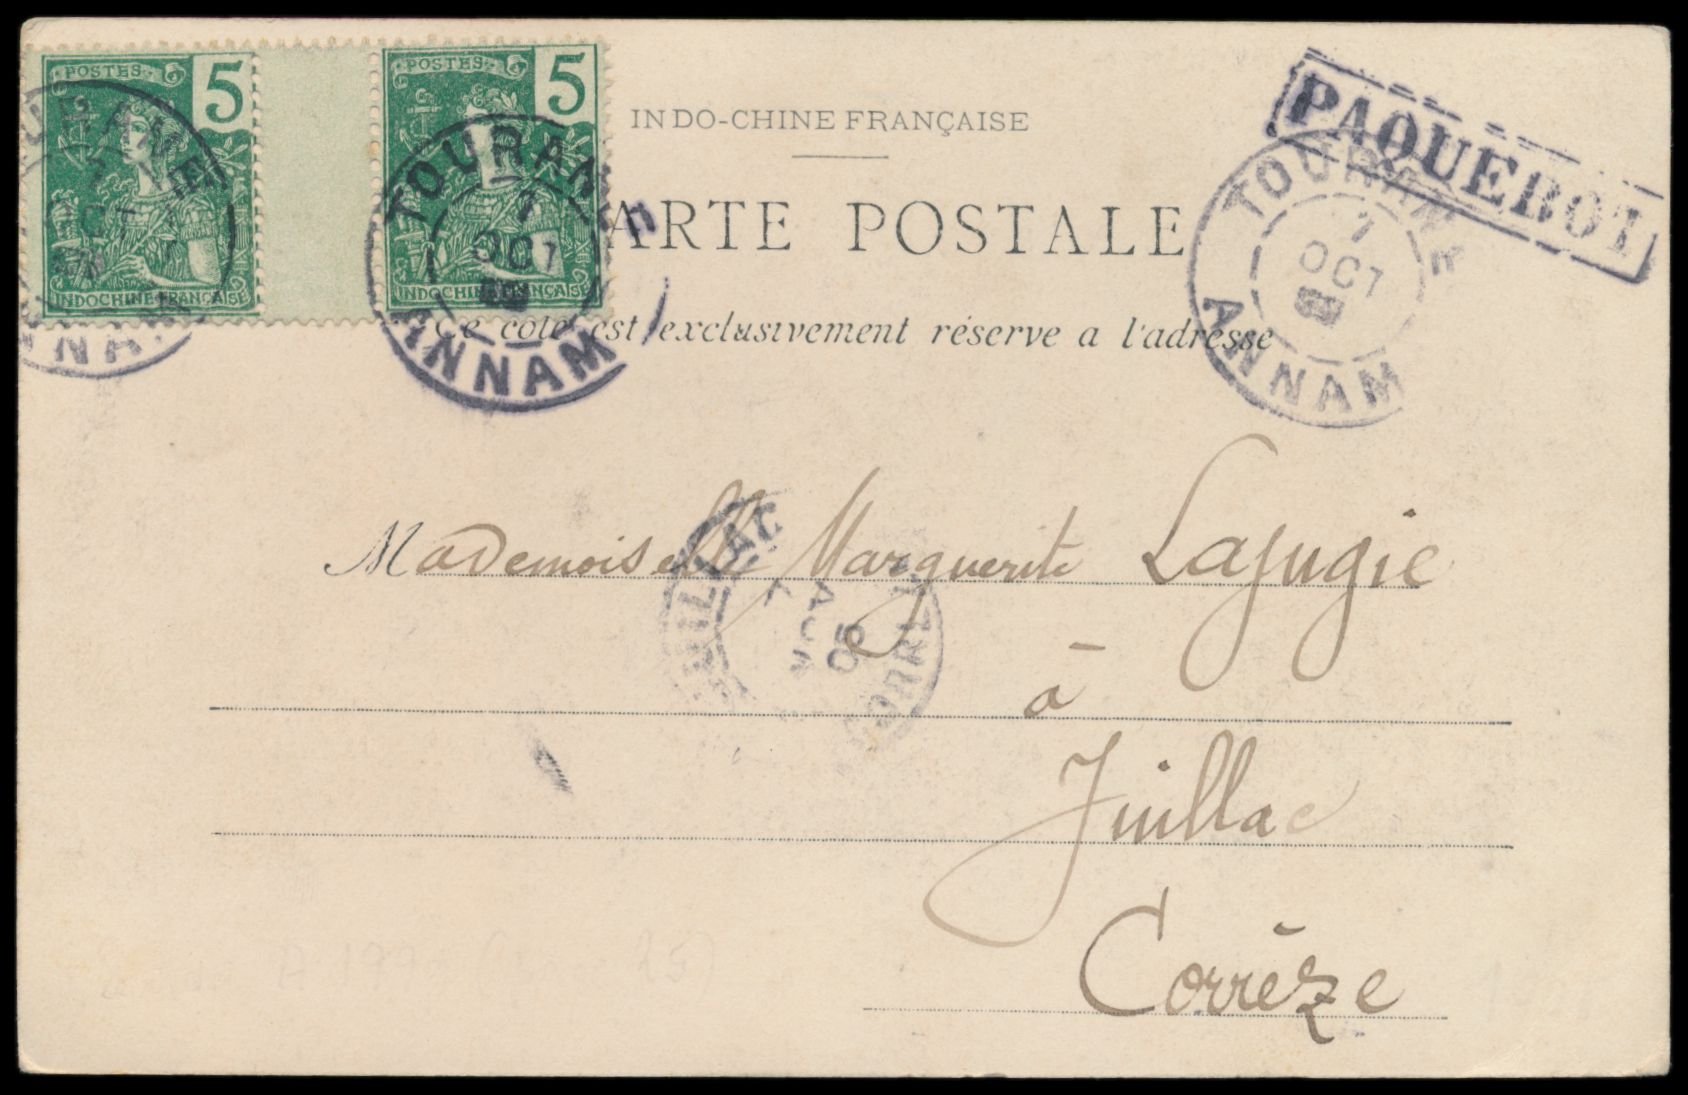 POSTES 5
INDOCHINE FRANÇAISE
POSTES 5
INDOCHINE FRANÇAISE
TOURANE
OCT
ANNAM
TOURANE
7
OCT
ANNAM
INDO-CHINE FRANÇAISE
CARTE POSTALE
Ce coté est exclusivement réserve a l'adresse
PAQUEBOT
TOURANE
7
OCT
ANNAM
Mademoiselle Marguerite Lajugie
à
Juillac
Corrèze